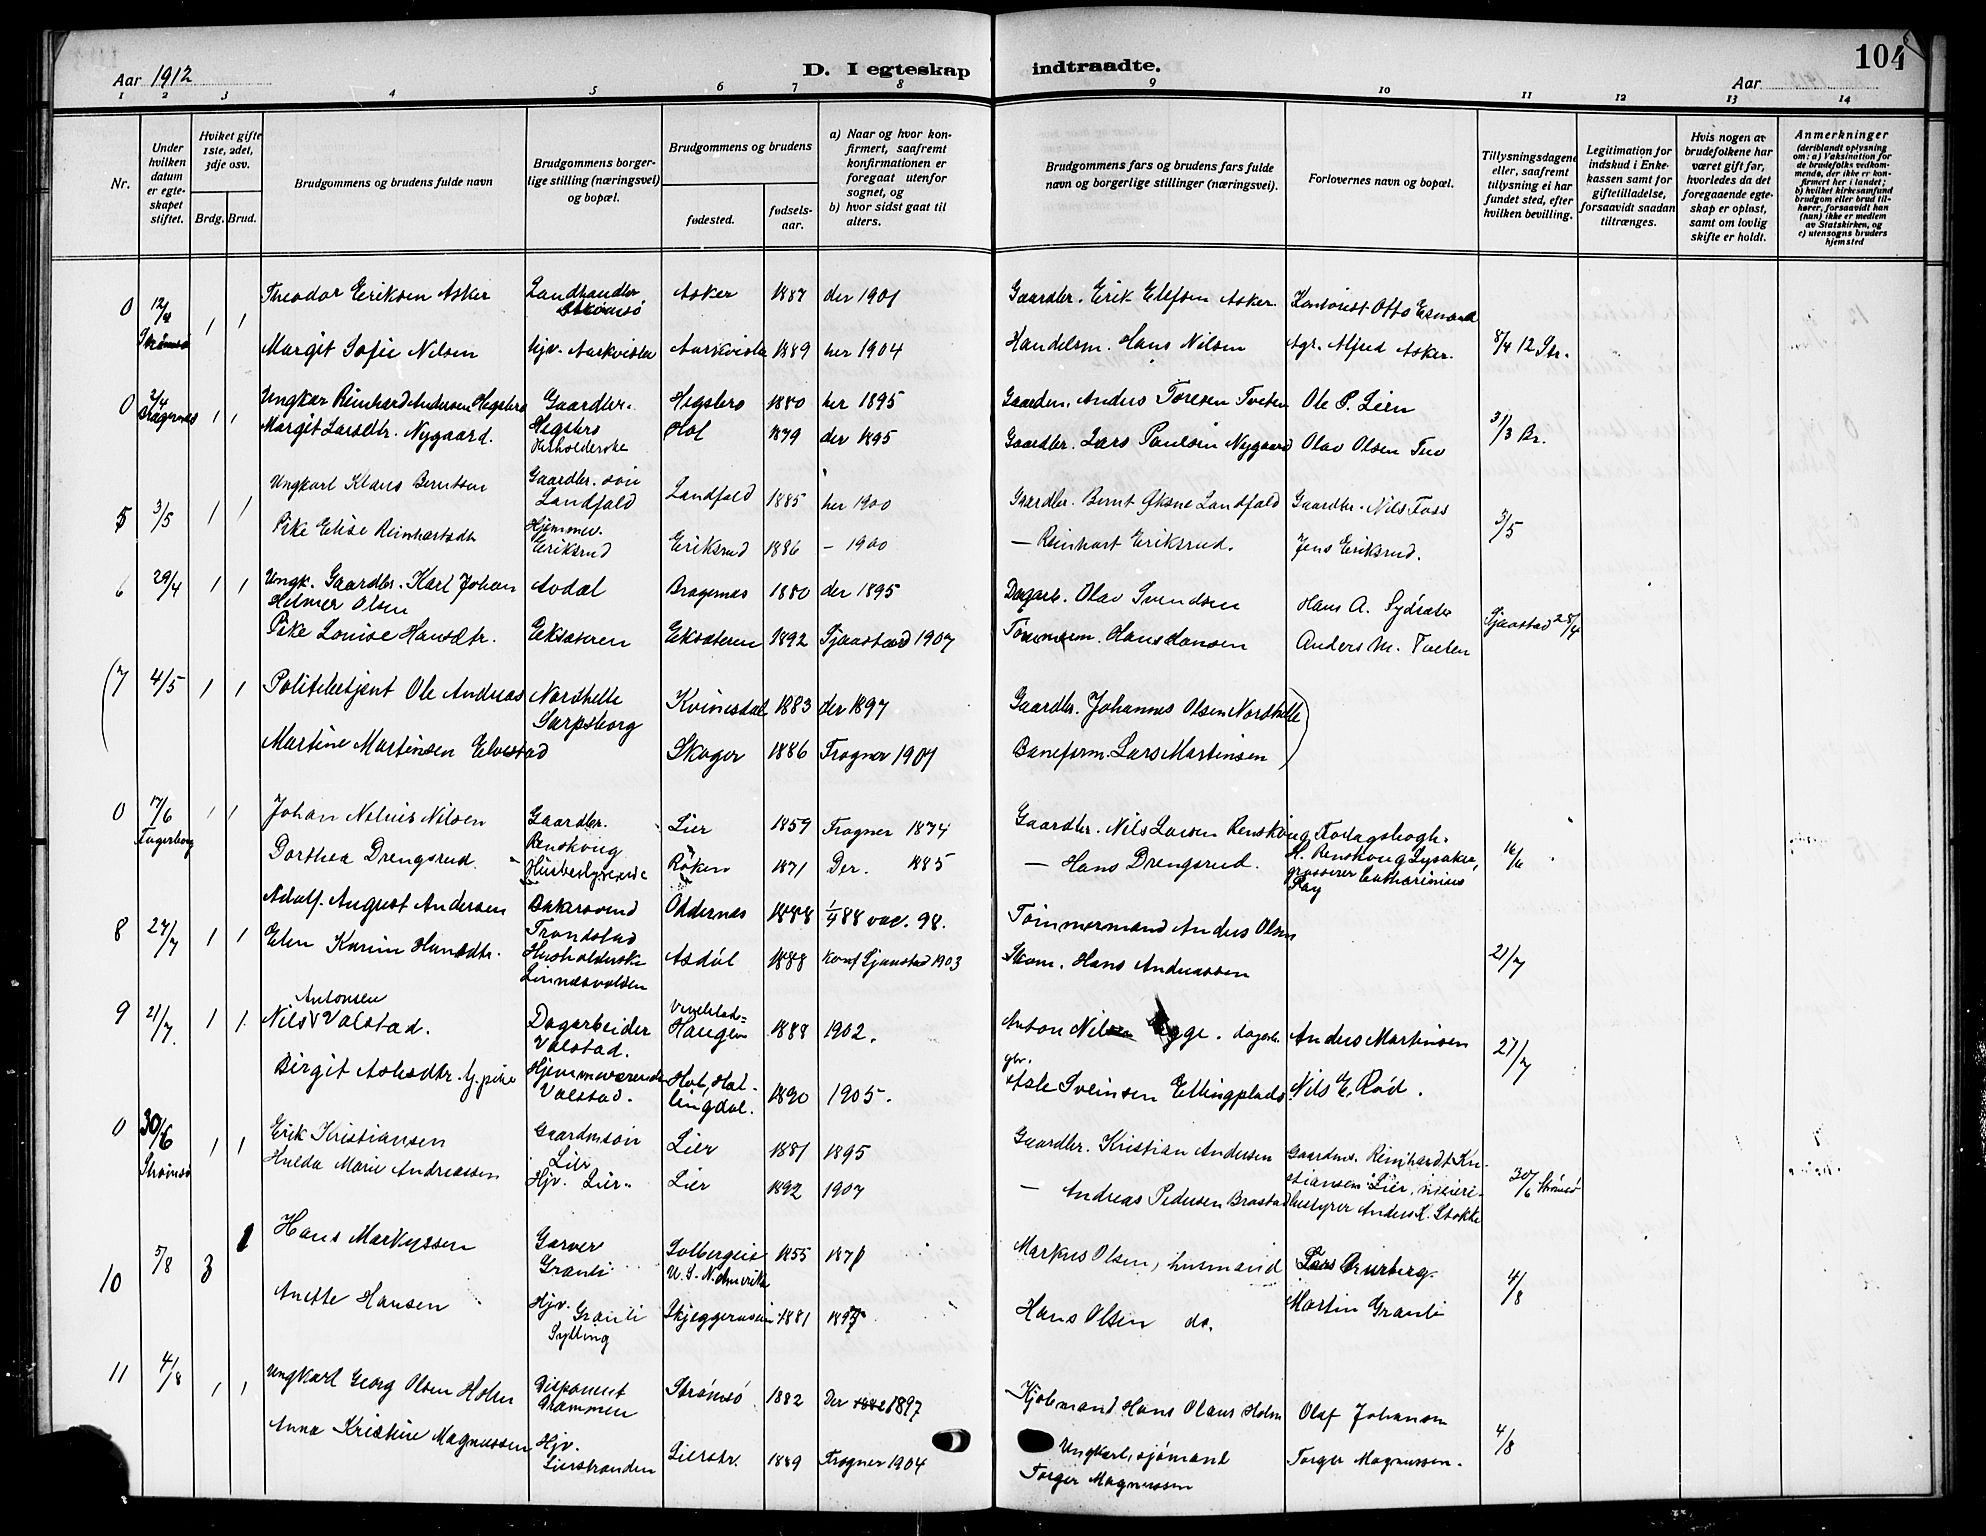 Aar 1912
D. I egteskap indtraadte.
Aar
104
1 2 3 4 5 6 7 8 9 10 11 12 13 14
Nr.
Under hvilken datum er egteskapet stiftet.
Hviket gifte 1ste, 2det, 3dje osv.
Brdg. Brud.
Brudgommens og brudens fulde navn
Brudgommens borgerlige stilling (næringsvei) og bopæl.
Brudgommens og brudens
fødested.
fødselsaar.
a) Naar og hvor konfirmert, saafremt konfirmationen er foregaat utenfor sognet, og
b) hvor sidst gaat til alters.
Brudgommens fars og brudens fars fulde navn og borgerlige stillinger (næringsvei).
Forlovernes navn og bopæl.
Tillysningsdagene eller, saafremt tillysning ei har fundet sted, efter hvilken bevilling.
Legitimation for indskud i Enkekassen samt for giftetilladelse, forsaavidt saadan tiltrænges.
Hvis nogen av brudefolkene har været gift før, hvorledes da det foregaaende egteskap er opløst, samt om lovlig skifte er holdt.
Anmerkninger (deriblandt oplysning om: a) Vaksination for de brudefolks vedkommende, der ikke er konfirmert her i landet; b) hvilket kirkesamfund brudgom eller brud tilhører, forsaavidt han (hun) ikke er medlem av Statskirken, og c) utensogns bruders hjemsted
0 12/4 Strømsø 1 1 Theodor Eriksen Asker Landhandler Strømsø Asker 1887 der 1901 Gaardbr. Erik Elefsen Asker. Kontorist Otto
Margit Sofie Nilsen Hjv. Aarkvisla Aarkvisla 1889 her 1904 Handelsm. Hans Nilsen Agr. Alfred Asker. 8/4 12 Str.
0 2/4 Bragernes 1 1 Ungkar Reinhard Andersen Hegsbro Gaardbr. Hegsbro Hegsbro 1880 her 1895 Gaardm. Anders Toresen Tveten Ole P. Lien
Margit Larsdtr. Nygaard. Husholderske Hol 1879 der 1895 Gaardbr. Lars Paulsen Nygaard Olav Olsen Tuv 31/3 Br.
5 3/5 1 1 Ungkarl Klaus Berntsen Gaardbr. søn Landfald Landfald 1885 her 1900 Gaardbr. Bernt Øksne Landfald Gaardbr. Nils Foss
Pike Elise Reinhartsdtr Hjemmev. Eriksrud Eriksrud 1886 – 1900 — Reinhart Eriksrud. Jens Eriksrud. 3/5
6 29/4 1 1 Ungk. Gaardbr. Karl Johan Hilmer Olsen Avdal Bragernes 1880 der 1895 Dagarb. Olav Svendsen Hans A. Sydsæter
Pike Louise Hansdtr. Eksæteren Eksæteren 1892 Sjaastad 1907 Tømmerm. Hans Hansen Anders M. Tveten Sjaastad 28/4
(7 4/5 1 1 Politibetjent Ole Andreas Nordhelle Sarpsborg Kvinesdal 1883 der 1897 Gaardbr. Johannes Olsen Nordhelle
Martine Martinsen Elvestad Skoger 1886 Frogner 1901 Baneform. Lars Martinsen )
0 17/6 Fagerborg 1 1 Johan Nilius Nilsen Gaardbr. Renskoug Lier 1859 Frogner 1874 Gaardbr. Nils Larsen Renskoug
Dorthea Drengsrud. Husbestyrerinde Røken 1871 Der. 1885 — Hans Drengsrud. H. Renskoug Lysaker, grosserer Catharinius Ray 16/6
8 27/7 1 1 Adolf August Andersen Baksvend Trondstad Oddernes 1888 1/4 88 vac. 98. Tømmermand Anders Olsen
Elen Karine Hansdtr. Husholderske Linnesvolden Asdøl 1888 Konf Sjaastad 1903 Skom. Hans Andreassen 21/7
9 21/7. 1 1. Nils Antonsen Valstad. Dagarbeider Valstad. Haugen 1888 1902. Anton Nilsen Bygge. dagarb. Anders Martinsen
Birgit Aslesdtr. g. pike Hjemmeværende Valstad. Hol, Hallingdal. 1890 1905. gbr. Asle Sveinsen Ellingplads Nils E. Rød. 21/7
0 30/6 Strømsø 1 1 Erik Kristiansen Gaardmsøn Lier Lier 1881 1895 Gaardbr. Kristian Andersen Gaardm. Reinhardt Kristiansen Lier, meieribestyrer Anders K. Stokke
Hulda Marie Andreassen Hjv. Lier. Lier 1892 1907 — Andreas Pedersen Brastad 30/6 Strømsø
10 5/8 3 1 Hans Markussen Garver Granli Solbergeie U.S.N.Amerika 1855 1871 Markus Olsen, husmand Lars Burberg.
Anette Hansen Hjv. Granli Sylling Skjeggerudeie 1881 1897 Hans Olsen do. Martin Granli 4/8
11 4/8 1 1 Ungkarl Georg Olsen Holm Disponent Drammen Strømsø 1882 Der 1882 1897 Kjøbmand Hans Olaus Holm Olaf Johansen
Anna Kristine Magnussen Hjv. Lierstranden Lierstr. 1889 Frogner 1904 Ungkarl, sjømand Torger Magnussen Torger Magnussen. 4/8